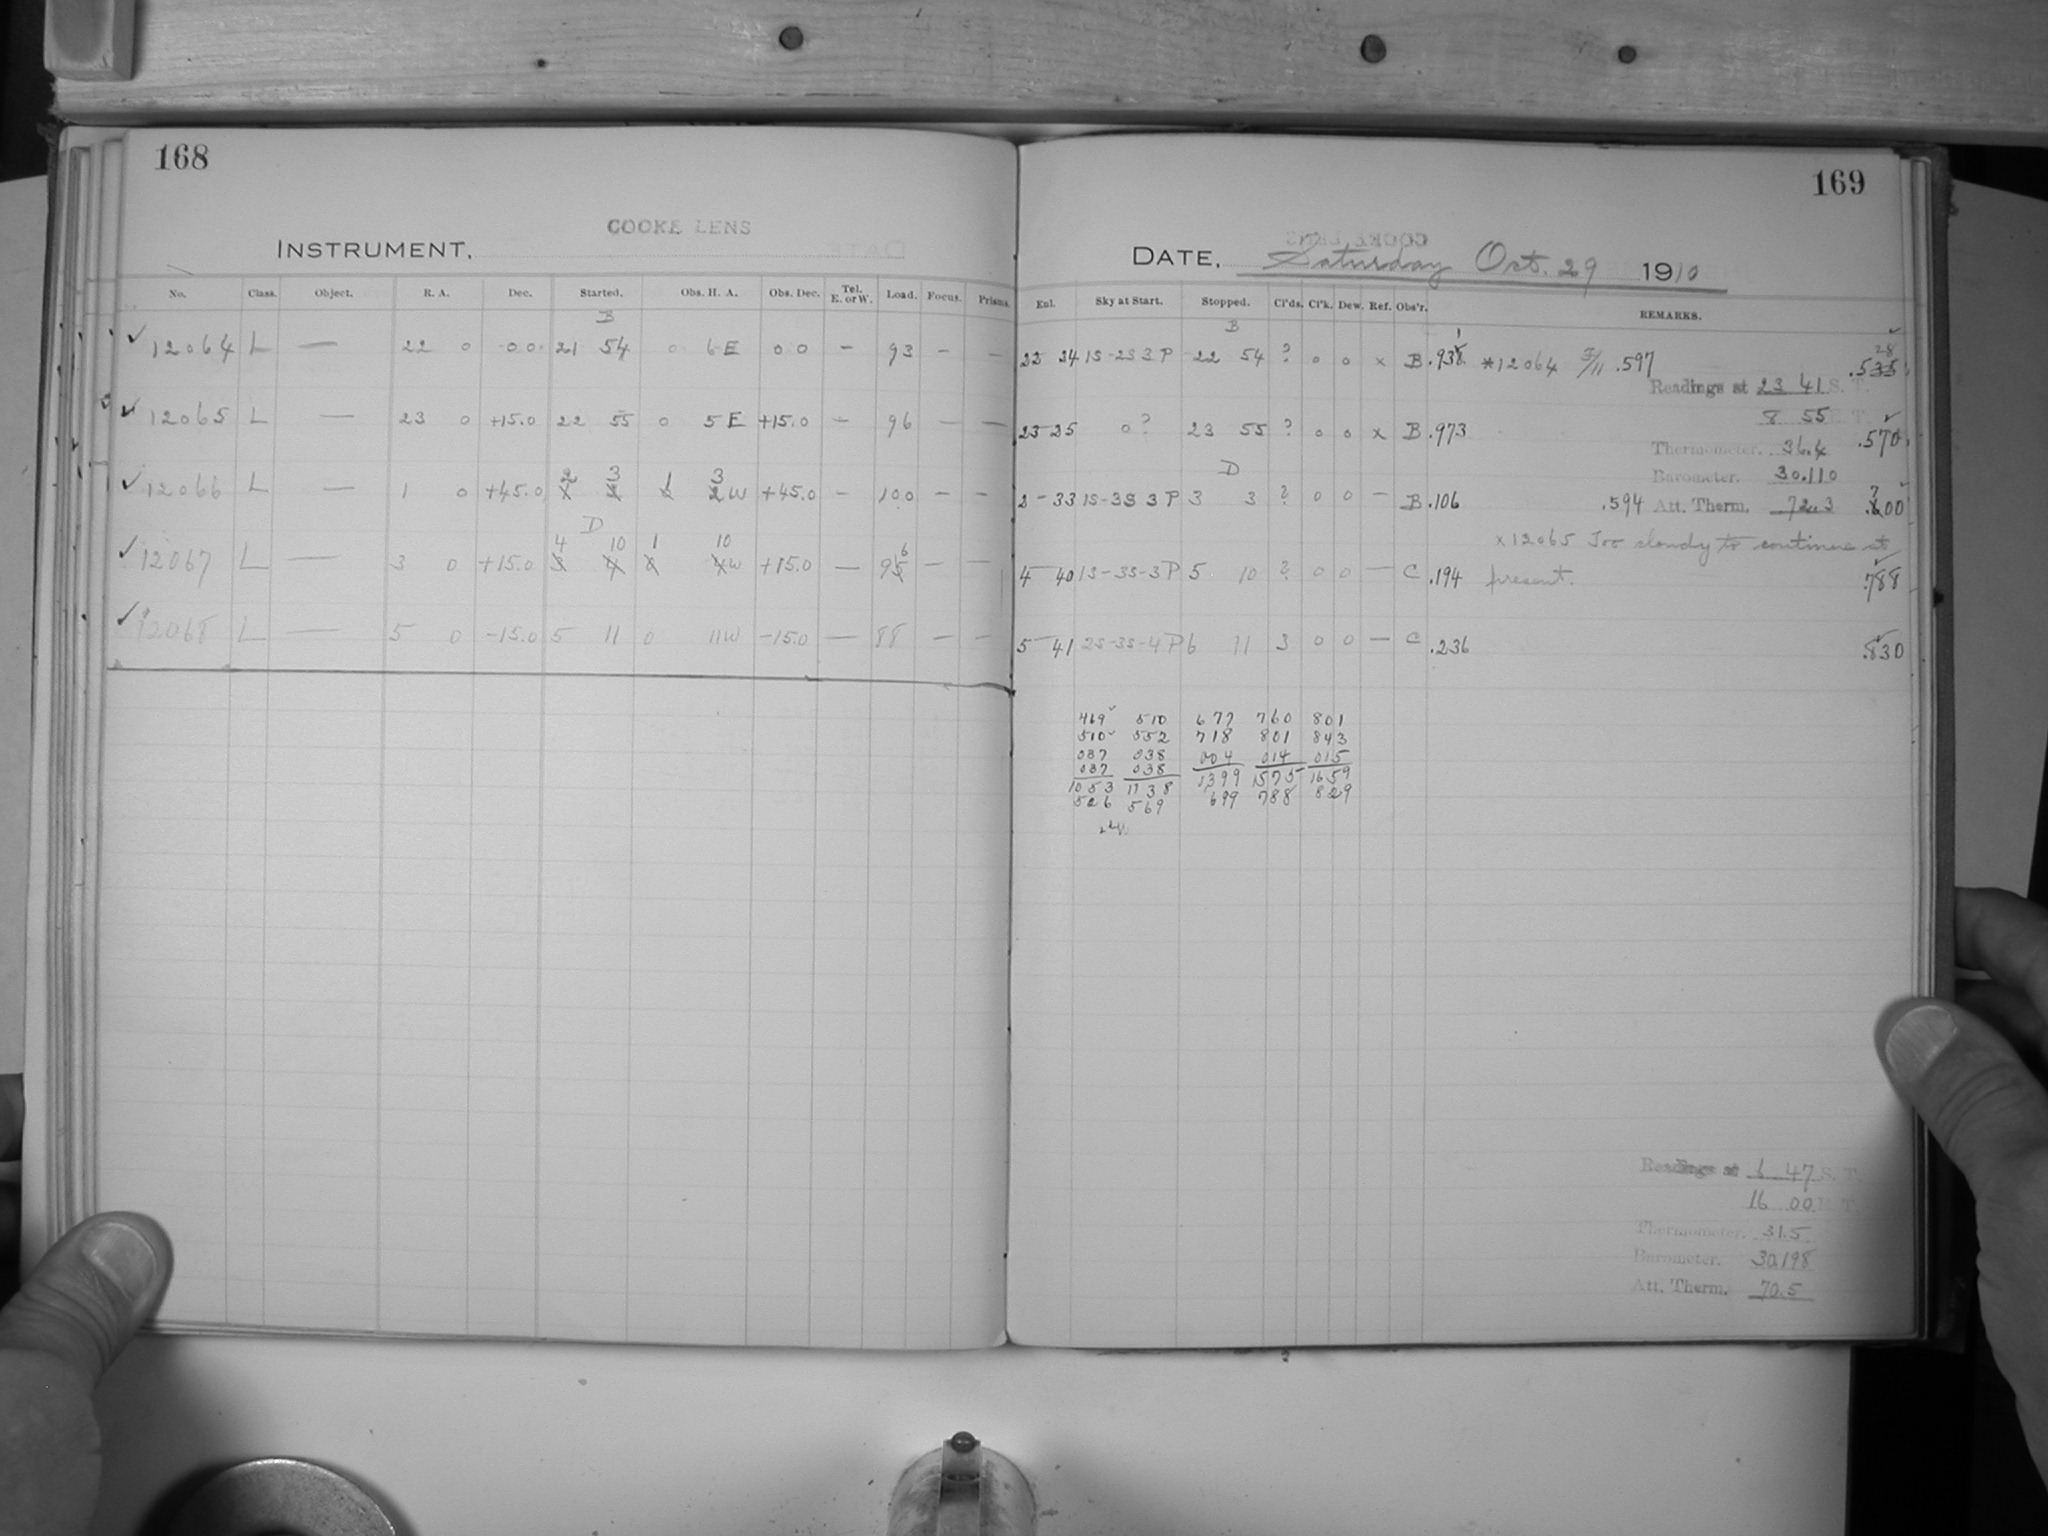 168
COOKE LENS
INSTRUMENT,
No. Class. Object. R. A. Dec. Started. Obs. H. A. Obs. Dec. Tel. E. or W. Load. Focus. Prisms.
B
✓ 12064 L — 22 0 00 21 54 0 6E 00 — 93 — —
✓ 12065 L — 23 0 +15.0 22 55 0 5E +15.0 — 96 — —
2 3 3
✓ 12066 L — 1 0 +45.0 1 2W +45.0 — 100 — —
D
4 10 1 10 6
✓ 12067 L — 3 0 +15.0 W +15.0 — 95 — —
✓ 12068 L — 5 0 -15.0 5 11 0 11W -15.0 — 88 — —
169
DATE, Saturday Oct. 29 1910
Enl. Sky at Start. Stopped. Cl'ds. Cl'k. Dew. Ref. Obs'r. REMARKS.
B
22 24 1S-2S 3 P 22 54 ? 0 0 x B .938 *12064 5/11 .597 28 .535
Readings at 23 41 S. T.
8 55 T.
23 25 0? 23 55 ? 0 0 x B .973 .570
Thermometer. 36.4
Barometer. 30.110
D
2 33 1S-3S 3 P 3 3 ? 0 0 — B .106 .594 Att. Therm. 72.3 7 .600
x12065 Too cloudy to continue at
4 40 1S-3S-3P 5 10 ? 0 0 — C .194 present. .788
5 41 2S-3S-4P 6 11 3 0 0 — C .236 .830
469 510 677 760 801
510 552 718 801 843
037 038 004 014 015
037 038 1399 1575 1659
1053 1138 699 788 829
526 569
Readings at 6 47 S. T.
16 00 T.
Thermometer. 31.5
Barometer. 30.198
Att. Therm. 70.5